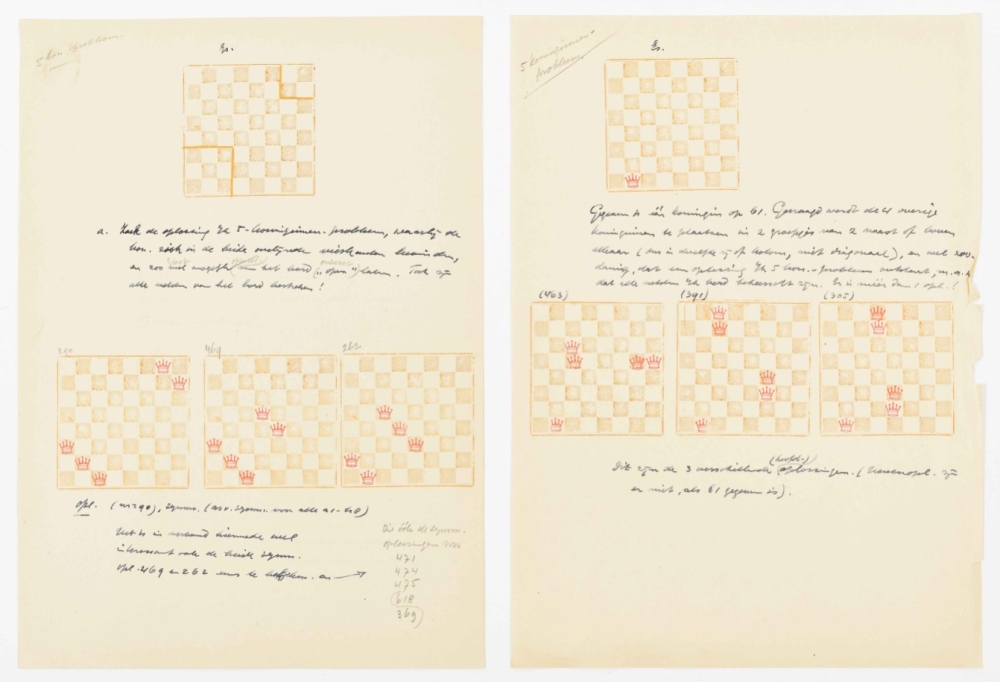 5 kon. probleem.
a. Zoek de oplossing 5-koninginnen-probleem, waarbij de
kon. zich in de beide bevinden,
en zoo veel het bord ("open") laten. Toch zijn
alle velden van het bord bestreken!
290
469
262
opl. (no 290), symm. (as v. symm. van alle a1-h8)
Het is in verband hiermede wel
interessant ook de beide symm.
opl. 469 en 262 eens te bekijken. en →
Zie ook de symm.
oplossingen
471
474
475
(618
369)
5 koninginnen-
probleem.
Gegeven is één koningin op b1. Gevraagd wordt de 4 overige
koninginnen te plaatsen in 2 groepjes van 2 naast of boven
elkaar (dus in dezelfde rij of kolom, niet diagonaal), en wel zoo-
danig, dat een oplossing 5 kon.-probleem ontstaat, m.a.w.
dat alle velden bord beheerscht zijn. Er is méér dan 1 opl.!
(463)
(391)
(305)
Dit zijn de 3 verschillende (hoofd-) oplossingen. (Nevenopl. zijn
er niet, als b1 gegeven is).